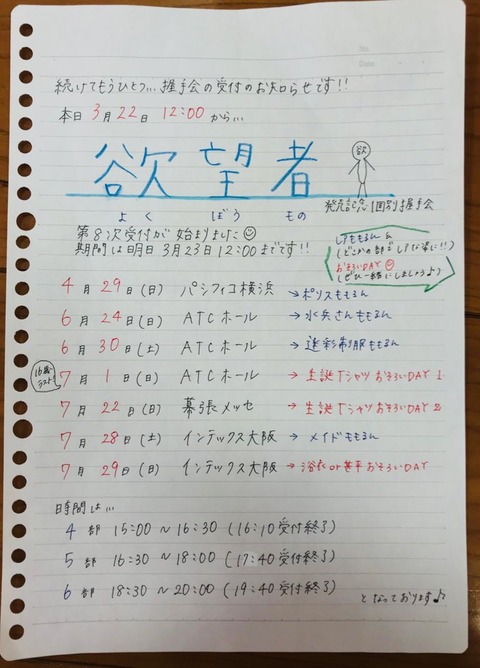 No.
Date
続けてもうひとつ... 握手会の受付のお知らせです!!
本日 3月22日 12:00 から...
欲望者
よく ぼう もの
欲
発売記念個別握手会
第8次受付が始まりました
期間は明日 3月23日 12:00までです!!
レアももるん&
(どこかの部がレアな姿に!!)
おそろいDAY
(ぜひ一緒にしましょう♪)
4月29日(日) パシフィコ横浜 →ポリスももるん
6月24日(日) ATCホール →水兵さんももるん
6月30日(土) ATCホール →迷彩制服ももるん
16歳ラスト!
7月1日(日) ATCホール →生誕TシャツおそろいDAY 1
7月22日(日) 幕張メッセ →生誕TシャツおそろいDAY 2
7月28日(土) インテックス大阪 →メイドももるん
7月29日(日) インテックス大阪 →浴衣or甚平おそろいDAY
時間は...
4部 15:00～16:30 (16:10受付終了)
5部 16:30～18:00 (17:40受付終了)
6部 18:30～20:00 (19:40受付終了)
となっております♪